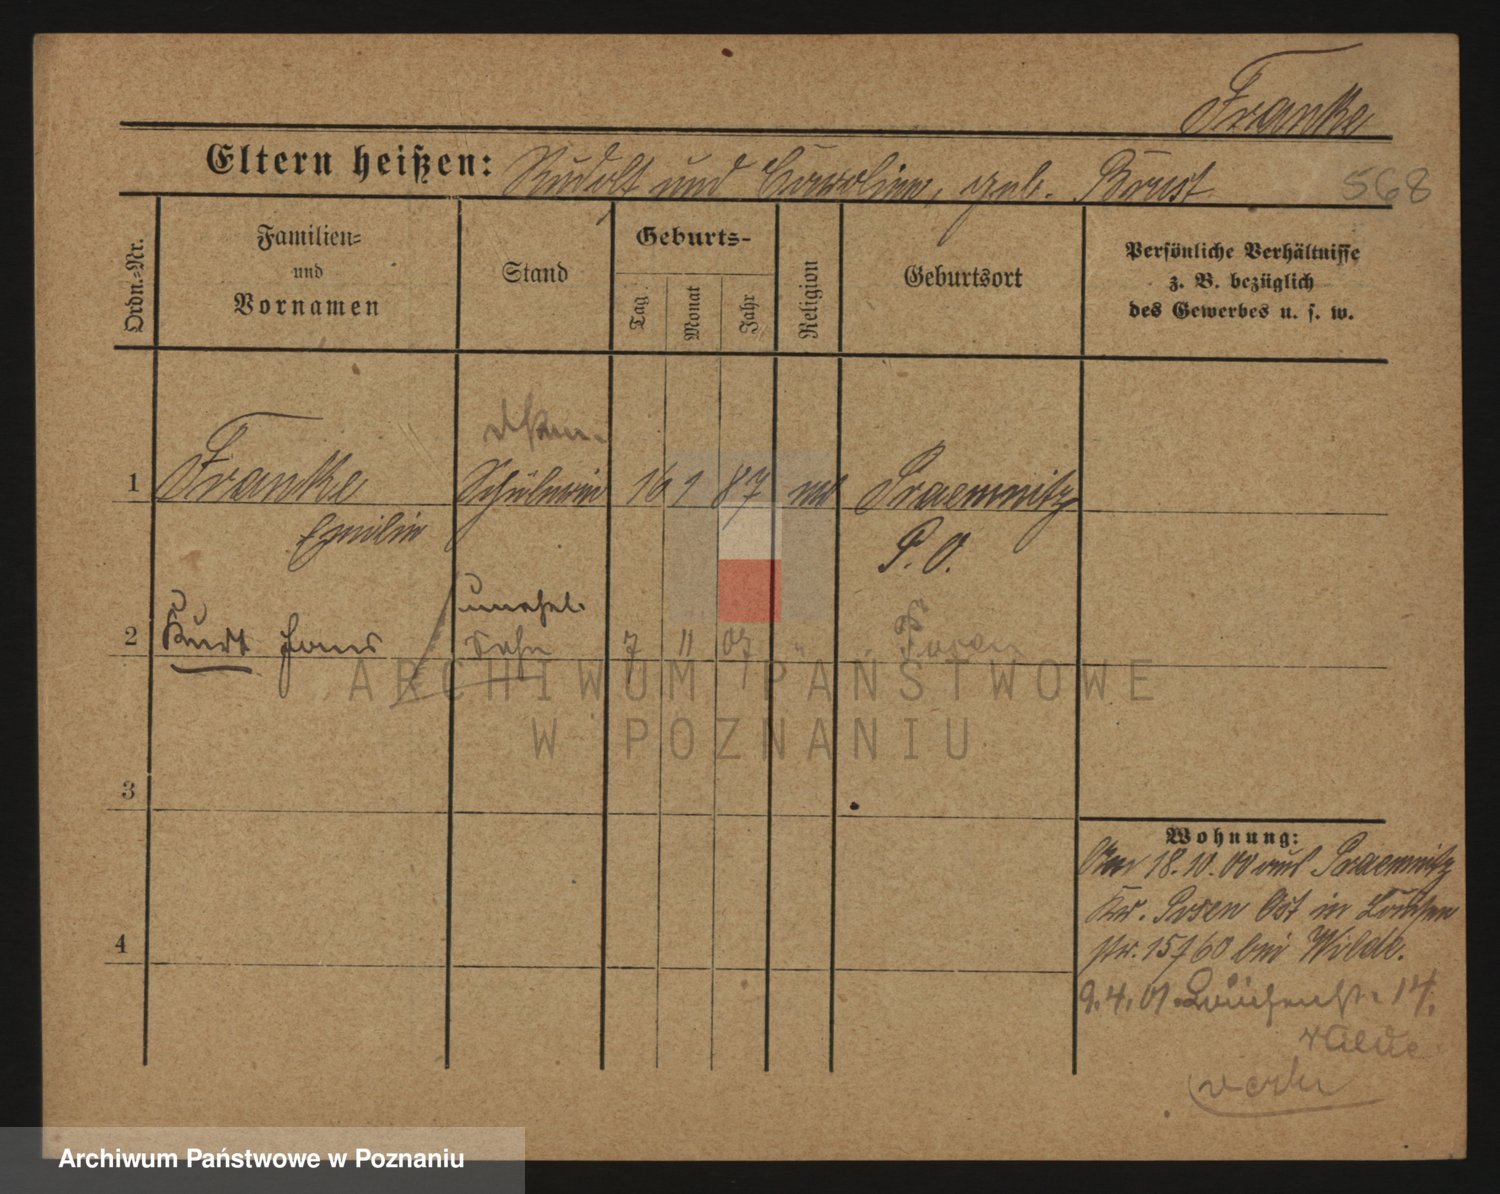 Franke
Eltern heißen: Rudolf und Caroline, geb. Borust
568
Ordn.=Nr.
Familien=
und
Vornamen
Stand
Geburts-
Tag
Monat
Jahr
Religion
Geburtsort
Persönliche Verhältnisse
z. B. bezüglich
des Gewerbes u. s. w.
1 Franke Schülerin 16 1 87 Praemnitz
Emilie P. O.
unehel.
2 Kurt Hans Sohn 7 11 07 " Posen
ARCHIWUM PAŃSTWOWE
W POZNANIU
3
Wohnung:
18.10.00 aus Praemnitz
Krs. Posen Ost in Louisen
str. 15/60 bei Wilde.
4
9.4.01 Louisenst. 14.
Wilde
Archiwum Państwowe w Poznaniu